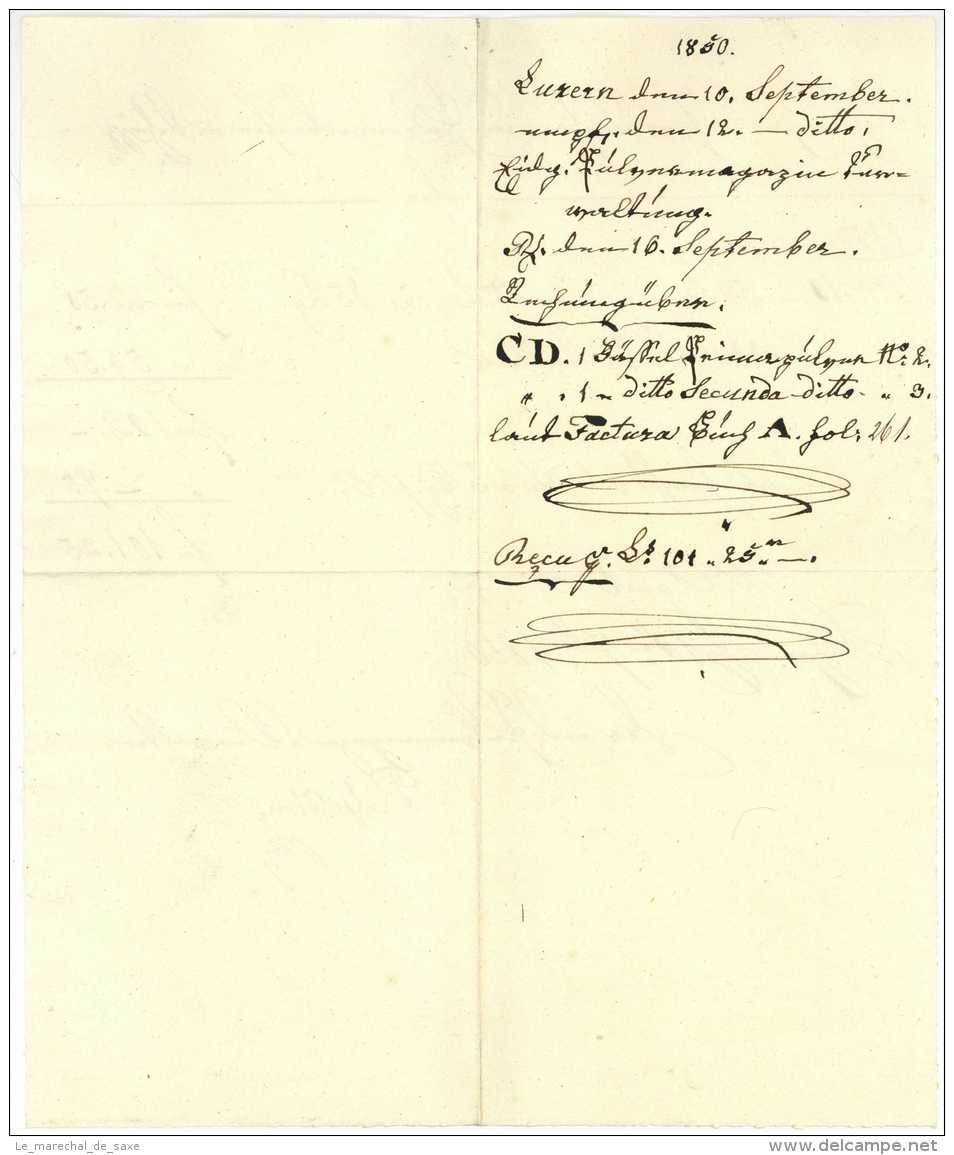 1850.
Luzern den 10. September.
empf. den 12. — ditto.
Eidg. Pulvermagazin Ver=
waltung.
den 16. September.
CD. 1 Fässel Prima pulver No: 2.
" . 1 – ditto Secunda ditto – " 3.
laut Factura Buch A. fol: 261.
Recu p. Ls. 101 " 25 " —.
Le_marechal_de_saxe
delcampe.net